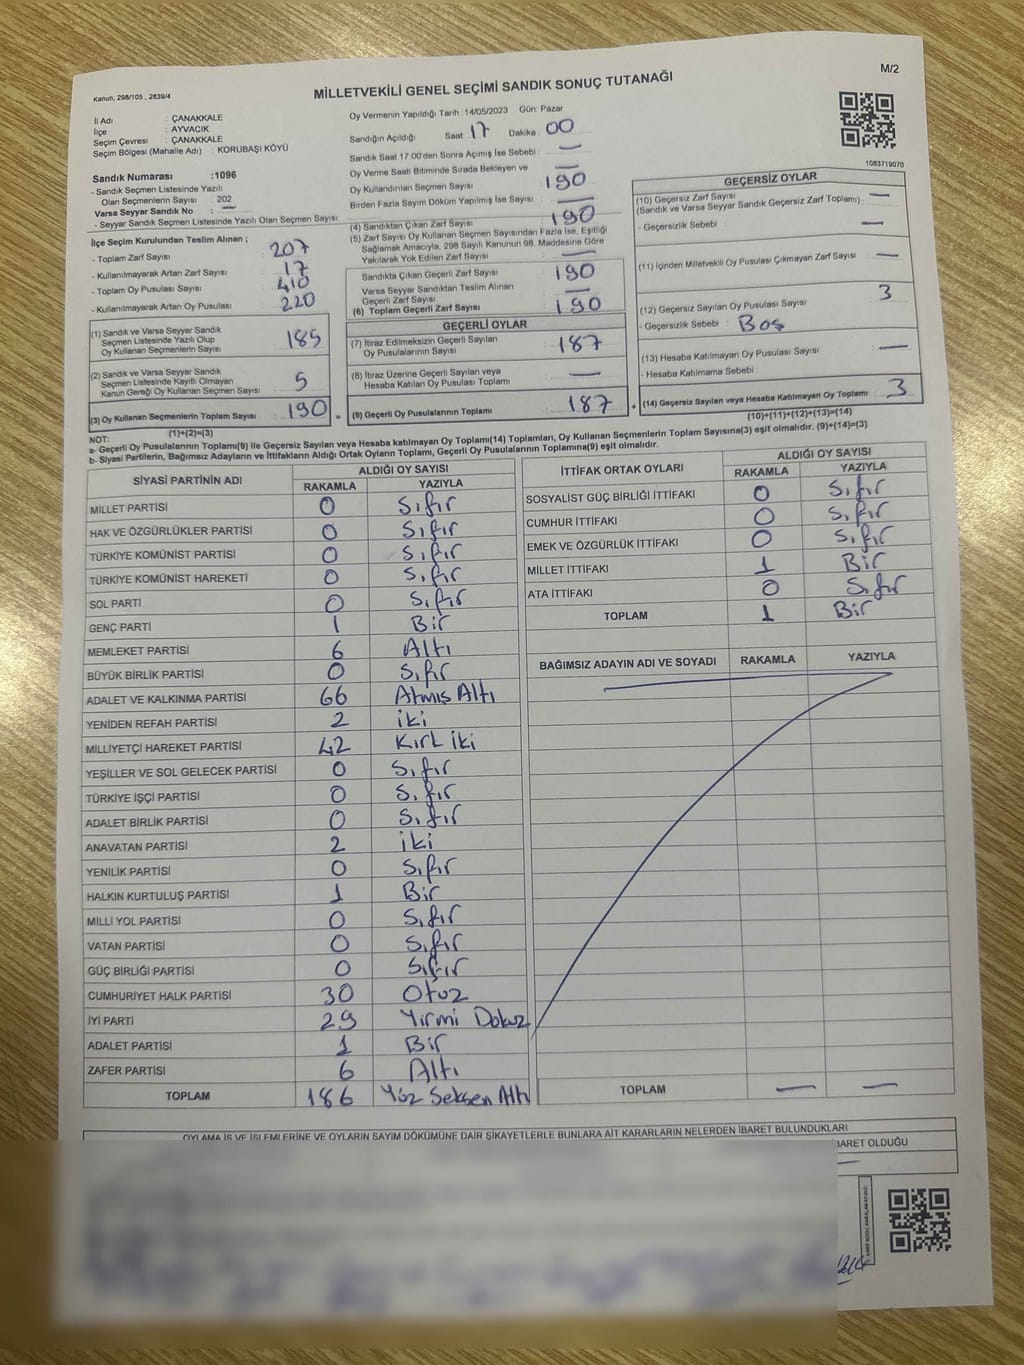 M/2
Kanun; 298/105 , 2839/4
MİLLETVEKİLİ GENEL SEÇİMİ SANDIK SONUÇ TUTANAĞI
İl Adı : ÇANAKKALE
İlçe : AYVACIK
Seçim Çevresi : ÇANAKKALE
Seçim Bölgesi (Mahalle Adı) : KORUBAŞI KÖYÜ
Sandık Numarası :1096
- Sandık Seçmen Listesinde Yazılı
Olan Seçmenlerin Sayısı : 202
Varsa Seyyar Sandık No : —
- Seyyar Sandık Seçmen Listesinde Yazılı Olan Seçmen Sayısı
İlçe Seçim Kurulundan Teslim Alınan ;
- Toplam Zarf Sayısı : 207
- Kullanılmayarak Artan Zarf Sayısı : 17
- Toplam Oy Pusulası : 410
- Kullanılmayarak Artan Oy Pusulası : 220
(1) Sandık ve Varsa Seyyar Sandık
Seçmen Listesinde Yazılı Olup
Oy Kullanan Seçmenlerin Sayısı : 185
(2) Sandık ve Varsa Seyyar Sandık
Seçmen Listesinde Kayıtlı Olmayan
Kanun Gereği Oy Kullanan Seçmen Sayısı : 5
(3) Oy Kullanan Seçmenlerin Toplam Sayısı : 190 =
(1)+(2)=(3)
Oy Vermenin Yapıldığı Tarih :14/05/2023 Gün: Pazar
Sandığın Açıldığı Saat 17 Dakika : 00
Sandık Saat 17:00'den Sonra Açımış İse Sebebi : —
Oy Verme Saati Bitiminde Sırada Bekleyen ve —
Oy Kullandırılan Seçmen Sayısı : 190
Birden Fazla Sayım Döküm Yapılmış İse Sayısı : —
(4) Sandıktan Çıkan Zarf Sayısı : 190
(5) Zarf Sayısı Oy Kullanan Seçmen Sayısından Fazla İse, Eşitliği
Sağlamak Amacıyla, 298 Sayılı Kanunun 98. Maddesine Göre
Yakılarak Yok Edilen Zarf Sayısı : —
Sandıkta Çıkan Geçerli Zarf Sayısı : 190
Varsa Seyyar Sandıktan Teslim Alınan
Geçerli Zarf Sayısı : —
(6) Toplam Geçerli Zarf Sayısı : 190
GEÇERLİ OYLAR
(7) İtiraz Edilmeksizin Geçerli Sayılan
Oy Pusulalarının Sayısı : 187
(8) İtiraz Üzerine Geçerli Sayılan veya
Hesaba Katılan Oy Pusulası Toplamı : —
(9) Geçerli Oy Pusulalarının Toplamı : 187 +
1083719070
GEÇERSİZ OYLAR
(10) Geçersiz Zarf Sayısı
(Sandık ve Varsa Seyyar Sandık Geçersiz Zarf Toplamı) : —
- Geçersizlik Sebebi : —
(11) İçinden Milletvekili Oy Pusulası Çıkmayan Zarf Sayısı : —
(12) Geçersiz Sayılan Oy Pusulası Sayısı : 3
- Geçersizlik Sebebi : Boş
(13) Hesaba Katılmayan Oy Pusulası Sayısı : —
- Hesaba Katılmama Sebebi :
(14) Geçersiz Sayılan veya Hesaba Katılmayan Oy Toplamı : 3
(10)+(11)+(12)+(13)=(14)
NOT:
a- Geçerli Oy Pusulalarının Toplamı(9) ile Geçersiz Sayılan veya Hesaba katılmayan Oy Toplamı(14) Toplamları, Oy Kullanan Seçmenlerin Toplam Sayısına(3) eşit olmalıdır. (9)+(14)=(3)
b- Siyasi Partilerin, Bağımsız Adayların ve İttifakların Aldığı Ortak Oyların Toplamı, Geçerli Oy Pusulalarının Toplamına(9) eşit olmalıdır.
SİYASİ PARTİNİN ADI ALDIĞI OY SAYISI
RAKAMLA YAZIYLA
MİLLET PARTİSİ 0 Sıfır
HAK VE ÖZGÜRLÜKLER PARTİSİ 0 Sıfır
TÜRKİYE KOMÜNİST PARTİSİ 0 Sıfır
TÜRKİYE KOMÜNİST HAREKETİ 0 Sıfır
SOL PARTİ 0 Sıfır
GENÇ PARTİ 1 Bir
MEMLEKET PARTİSİ 6 Altı
BÜYÜK BİRLİK PARTİSİ 0 Sıfır
ADALET VE KALKINMA PARTİSİ 66 Atmış Altı
YENİDEN REFAH PARTİSİ 2 iki
MİLLİYETÇİ HAREKET PARTİSİ 42 Kırk iki
YEŞİLLER VE SOL GELECEK PARTİSİ 0 Sıfır
TÜRKİYE İŞÇİ PARTİSİ 0 Sıfır
ADALET BİRLİK PARTİSİ 0 Sıfır
ANAVATAN PARTİSİ 2 iki
YENİLİK PARTİSİ 0 Sıfır
HALKIN KURTULUŞ PARTİSİ 1 Bir
MİLLİ YOL PARTİSİ 0 Sıfır
VATAN PARTİSİ 0 Sıfır
GÜÇ BİRLİĞİ PARTİSİ 0 Sıfır
CUMHURİYET HALK PARTİSİ 30 Otuz
İYİ PARTİ 29 Yirmi Dokuz
ADALET PARTİSİ 1 Bir
ZAFER PARTİSİ 6 Altı
TOPLAM 186 Yüz Seksen Altı
İTTİFAK ORTAK OYLARI ALDIĞI OY SAYISI
RAKAMLA YAZIYLA
SOSYALİST GÜÇ BİRLİĞİ İTTİFAKI 0 Sıfır
CUMHUR İTTİFAKI 0 Sıfır
EMEK VE ÖZGÜRLÜK İTTİFAKI 0 Sıfır
MİLLET İTTİFAKI 1 Bir
ATA İTTİFAKI 0 Sıfır
TOPLAM 1 Bir
BAĞIMSIZ ADAYIN ADI VE SOYADI RAKAMLA YAZIYLA
TOPLAM — —
OYLAMA İŞ VE İŞLEMLERİNE VE OYLARIN SAYIM DÖKÜMÜNE DAİR ŞİKAYETLERLE BUNLARA AİT KARARLARIN NELERDEN İBARET BULUNDUKLARI
İBARET OLDUĞU